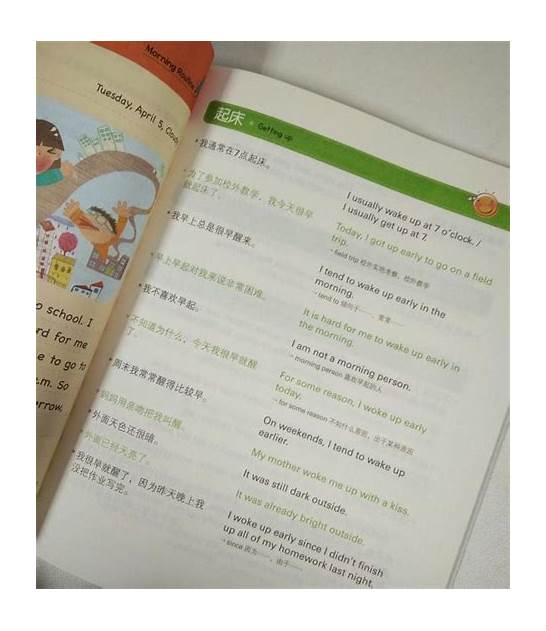 Morning Routine
Tuesday, April 5, Cloudy
o school. I
rd for me
e to go to
.m. So
orrow.
起床 · Getting up
• 我通常在7点起床。
I usually wake up at 7 o'clock. /
I usually get up at 7.
• 为了参加校外教学，我今天很早
就起床了。
Today, I got up early to go on a field
trip.
→ field trip 校外实地考察、校外教学
• 我早上总是很早醒来。
I tend to wake up early in the
morning.
→ tend to 倾向于……，常常……
• 早上早起对我来说非常困难。
It is hard for me to wake up early in
the morning.
• 我不喜欢早起。
I am not a morning person.
→ morning person 喜欢早起的人
• 不知道为什么，今天我很早就醒
了。
For some reason, I woke up early
today.
→ for some reason 不知什么原因，出于某种原因
• 周末我常常醒得比较早。
On weekends, I tend to wake up
earlier.
• 妈妈用亲吻把我叫醒。
My mother woke me up with a kiss.
• 外面天色还很暗。
It was still dark outside.
• 外面已经天亮了。
It was already bright outside.
• 我很早就醒了，因为昨天晚上我
没把作业写完。
I woke up early since I didn't finish
up all of my homework last night.
→ since 因为……，由于……